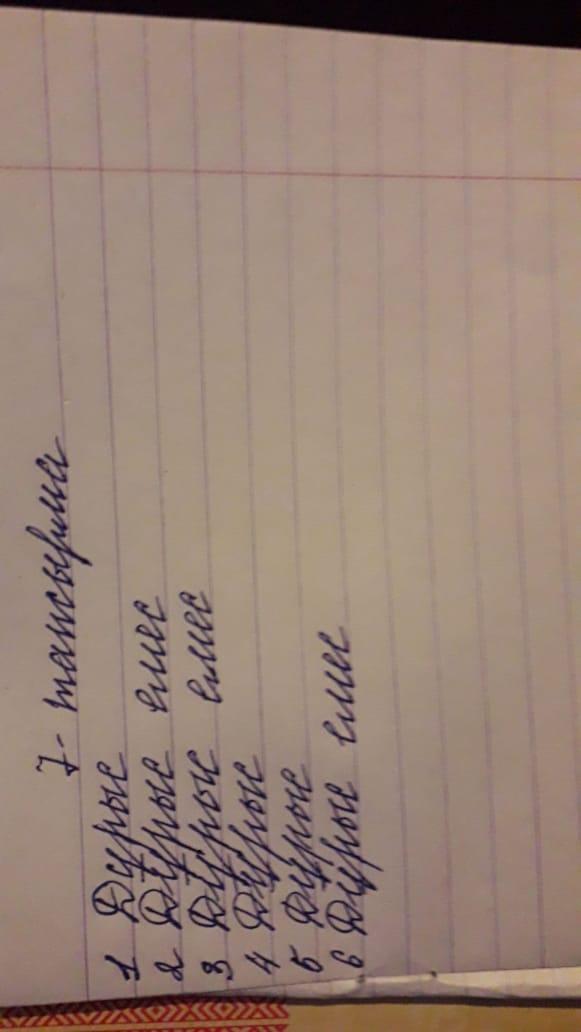 7- тапсырма
1 Дұрыс
2 Дұрыс емес
3 Дұрыс емес
4 Дұрыс
5 Дұрыс
6 Дұрыс емес